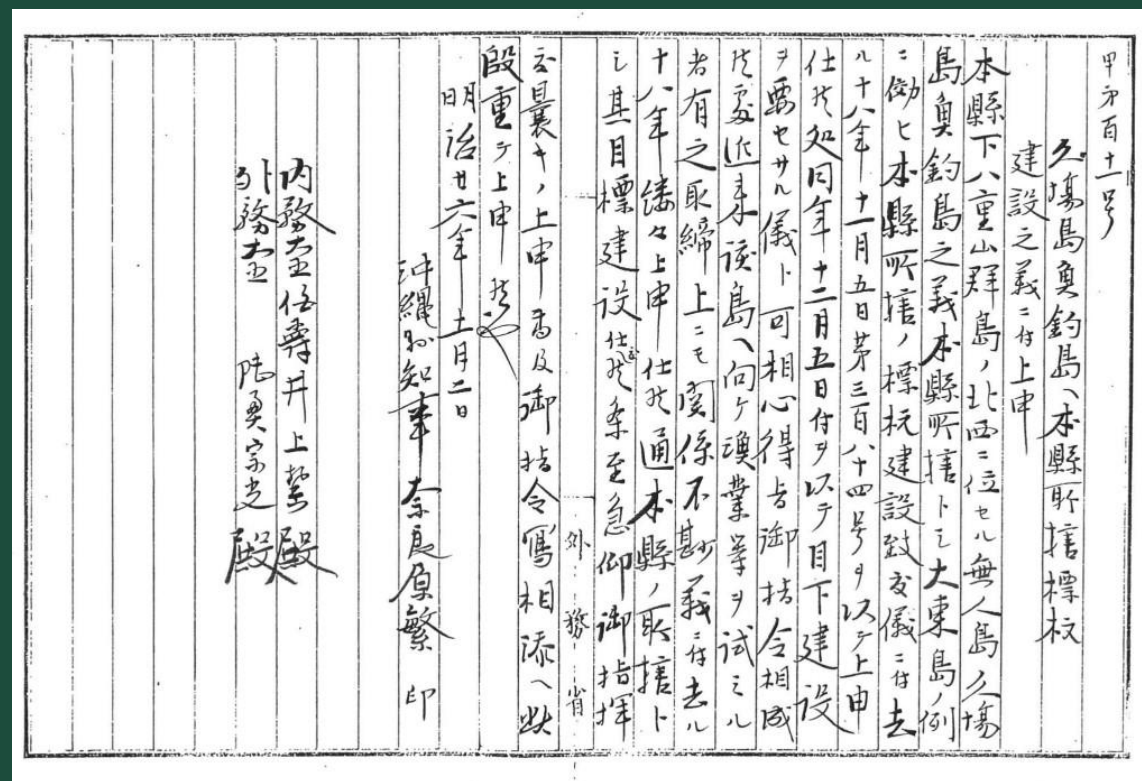 甲第百十一号
久場島魚釣島ヘ本縣所轄標杭
建設之義ニ付上申
本縣下八重山群島ノ北西ニ位セル無人島久場
島魚釣島之義本縣所轄トシ大東島ノ例
ニ傚ヒ本縣所轄ノ標杭建設致度儀ニ付去
ル十八年十一月五日第三百八十四号ヲ以テ上申
仕候処同年十二月五日付ヲ以テ目下建設
ヲ要セサル儀ト可相心得旨御指令相成
候処近来該島ヘ向ケ漁業等ヲ試ミル
者有之取締上ニモ関係不尠義ニ付去ル
十八年縷々上申仕候通本縣ノ所轄ト
シ其目標建設仕度候条至急仰御指揮
外務省
度曩キノ上申書及御指令写相添ヘ此
段重テ上申候也
明治廿六年十一月二日
沖縄縣知事奈良原繁 印
内務大臣伯爵井上馨殿
外務大臣 陸奥宗光殿